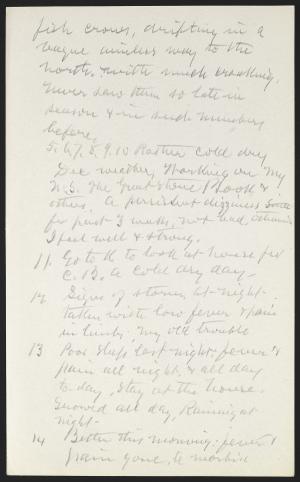 fish crows, drifting in a
vague aimless way to the
north, with much croaking.
Never saw them so late in
season & in such numbers
before.
5. 6. 7. 8. 9. 10 Rather cold dry
weather, Working on my
M.S. The Great Stone Book &
others. A persistent dizziness
for past 3 weeks, not bad
I feel well & strong.
11. Go to K to look at house for
C.B. A cold dry day.
12 Signs of storm, at night
taken with low fever & pain
in limbs, my old trouble
13 Poor sleep last night; fever &
pain all night, & all day
to-day, Stay at the house.
Snowed all day, Raining at
night.
14 Better this morning; fever &
pain gone,